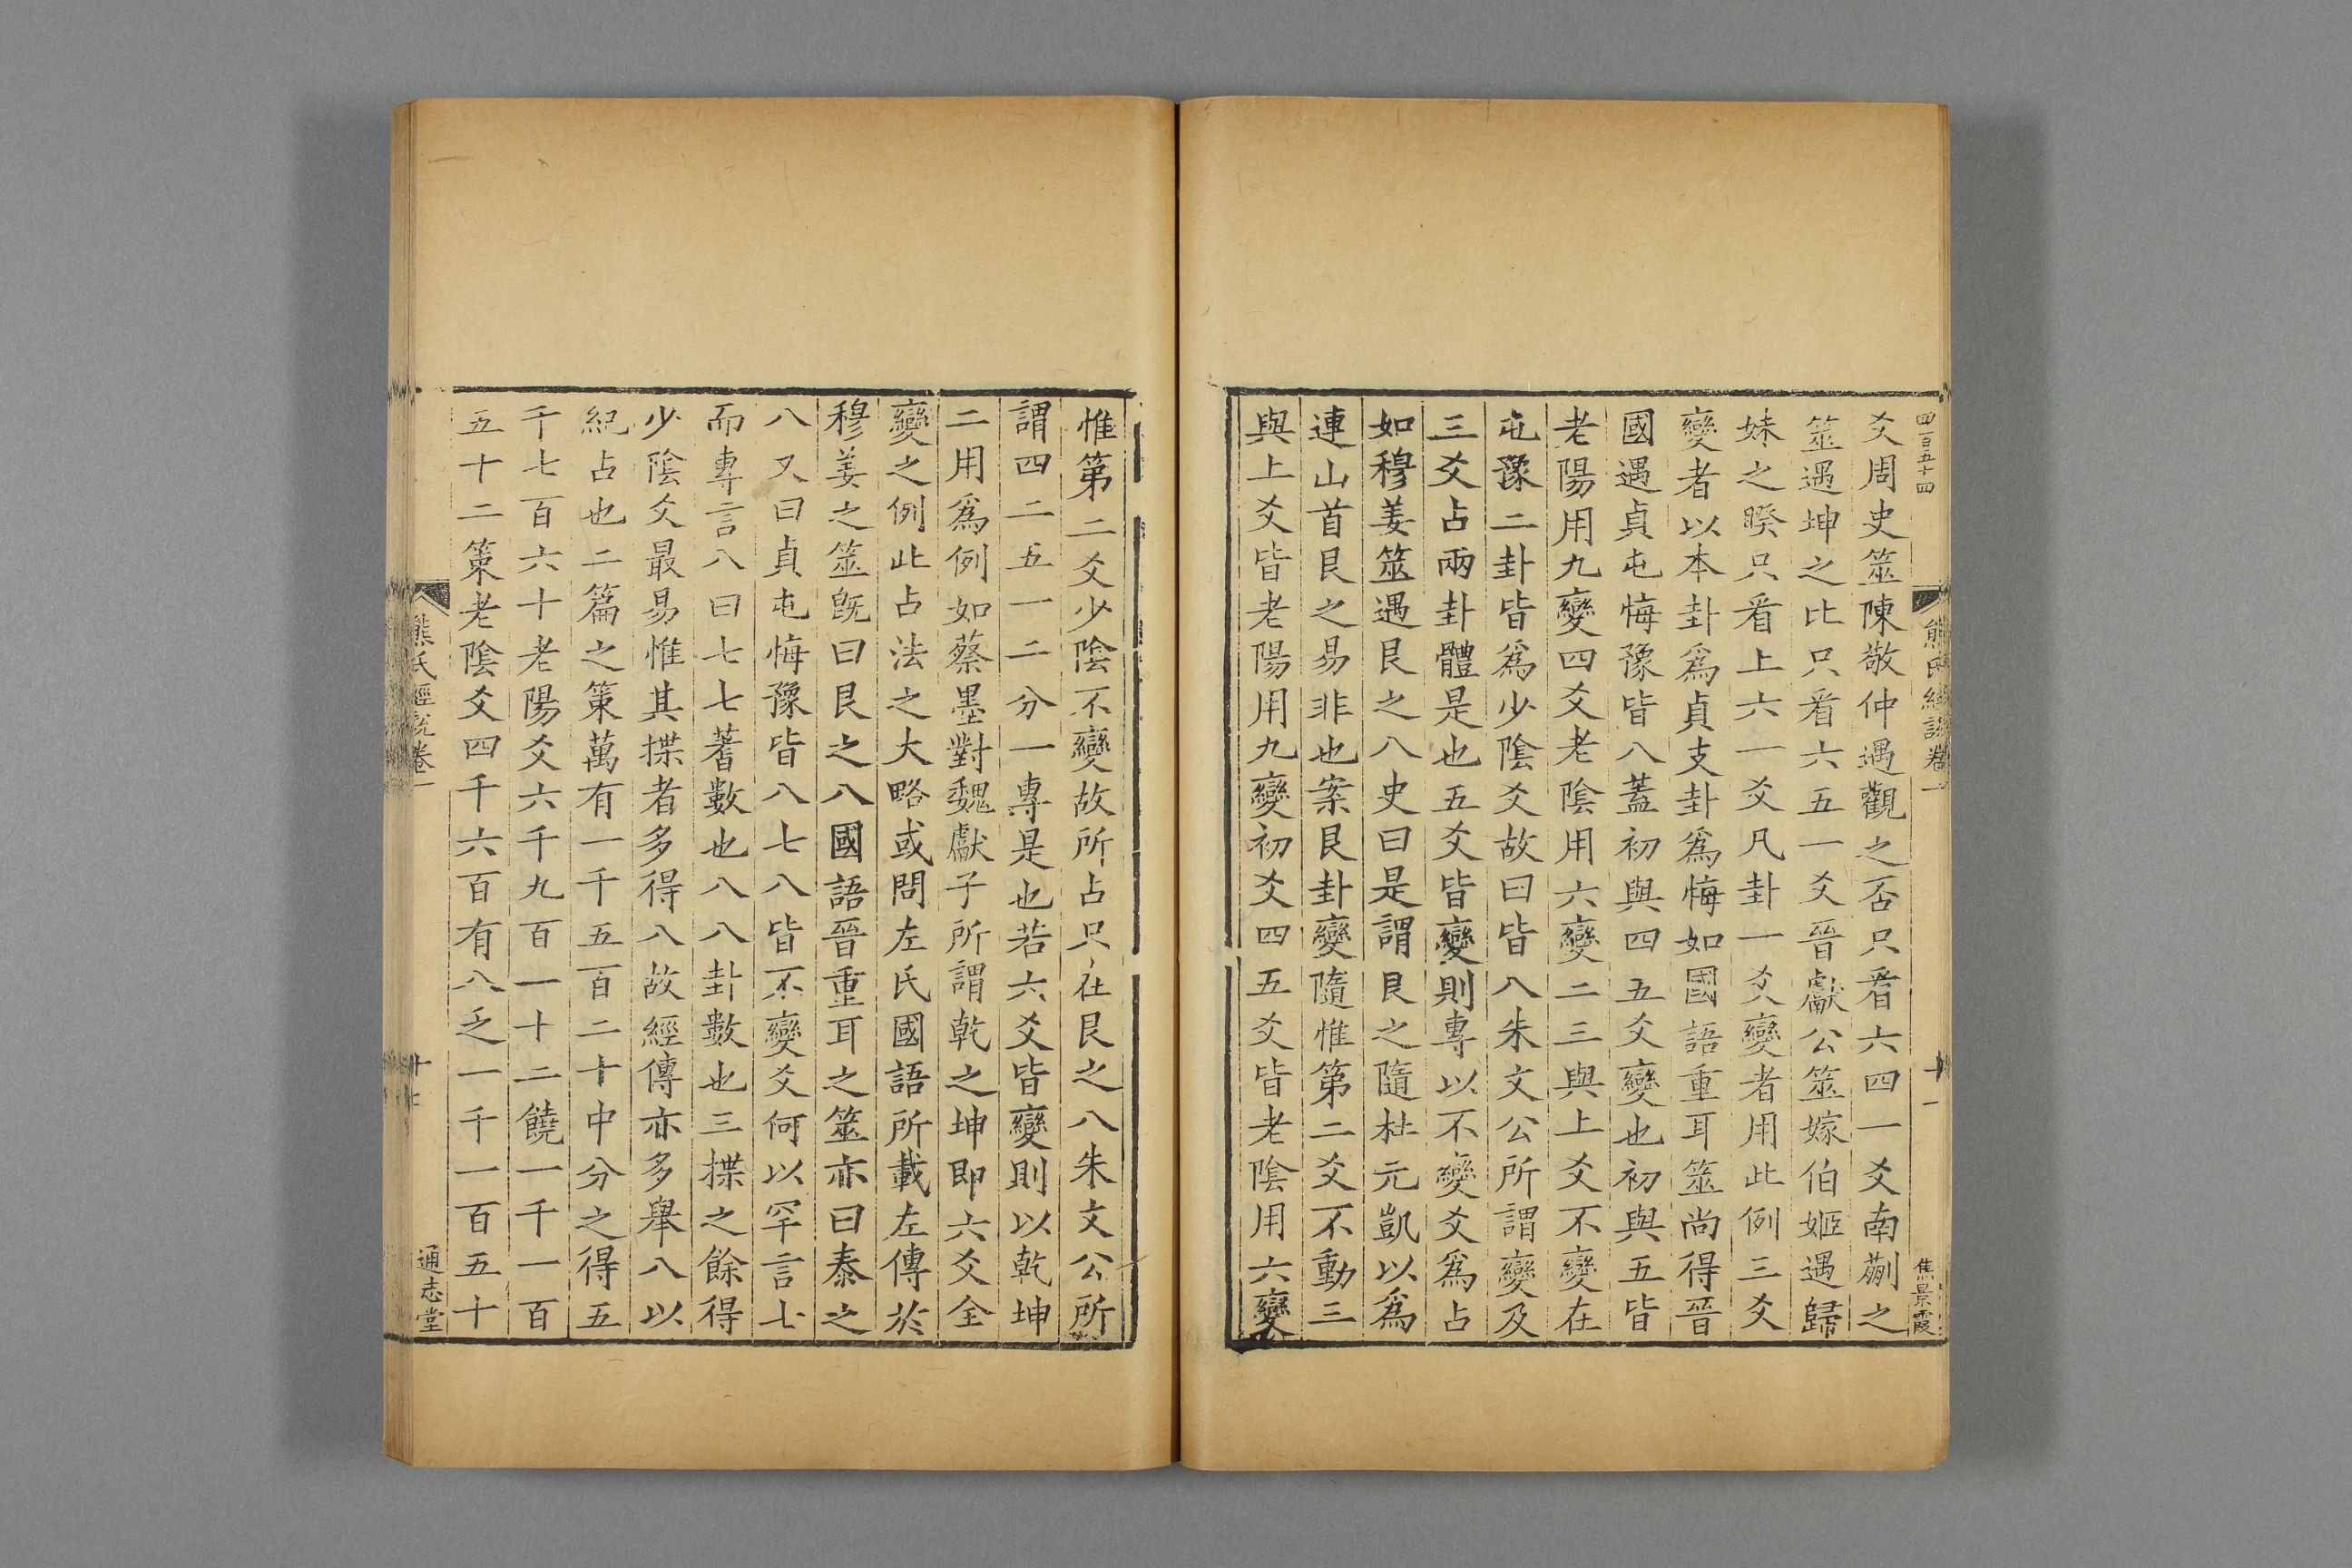 四百五十四
熊氏經說卷一
十一
焦景霞
爻周史筮陳敬仲遇觀之否只看六四一爻南蒯之
筮遇坤之比只看六五一爻晉獻公筮嫁伯姬遇歸
妹之睽只看上六一爻凡卦一爻變者用此例三爻
變者以本卦爲貞支卦爲悔如國語重耳筮尚得晉
國遇貞屯悔豫皆八蓋初與四五爻變也初與五皆
老陽用九變四爻老陰用六變二三與上爻不變在
屯豫二卦皆爲少陰爻故曰皆八朱文公所謂變及
三爻占兩卦體是也五爻皆變則專以不變爻爲占
如穆姜筮遇艮之八史曰是謂艮之隨杜元凱以爲
連山首艮之易非也案艮卦變隨惟第二爻不動三
與上爻皆老陽用九變初爻四五爻皆老陰用六變
惟第二爻少陰不變故所占只在艮之八朱文公所
謂四二五一二分一專是也若六爻皆變則以乾坤
二用爲例如蔡墨對魏獻子所謂乾之坤即六爻全
變之例此占法之大略或問左氏國語所載左傳於
穆姜之筮旣曰艮之八國語晉重耳之筮亦曰泰之
八又曰貞屯悔豫皆八七八皆不變爻何以罕言七
而專言八曰七七蓍數也八八卦數也三揲之餘得
少陰爻最易惟其揲者多得八故經傳亦多舉八以
紀占也二篇之策萬有一千五百二十中分之得五
千七百六十老陽爻六千九百一十二饒一千一百
五十二策老陰爻四千六百有八乏一千一百五十
熊氏經說卷一
十七
通志堂